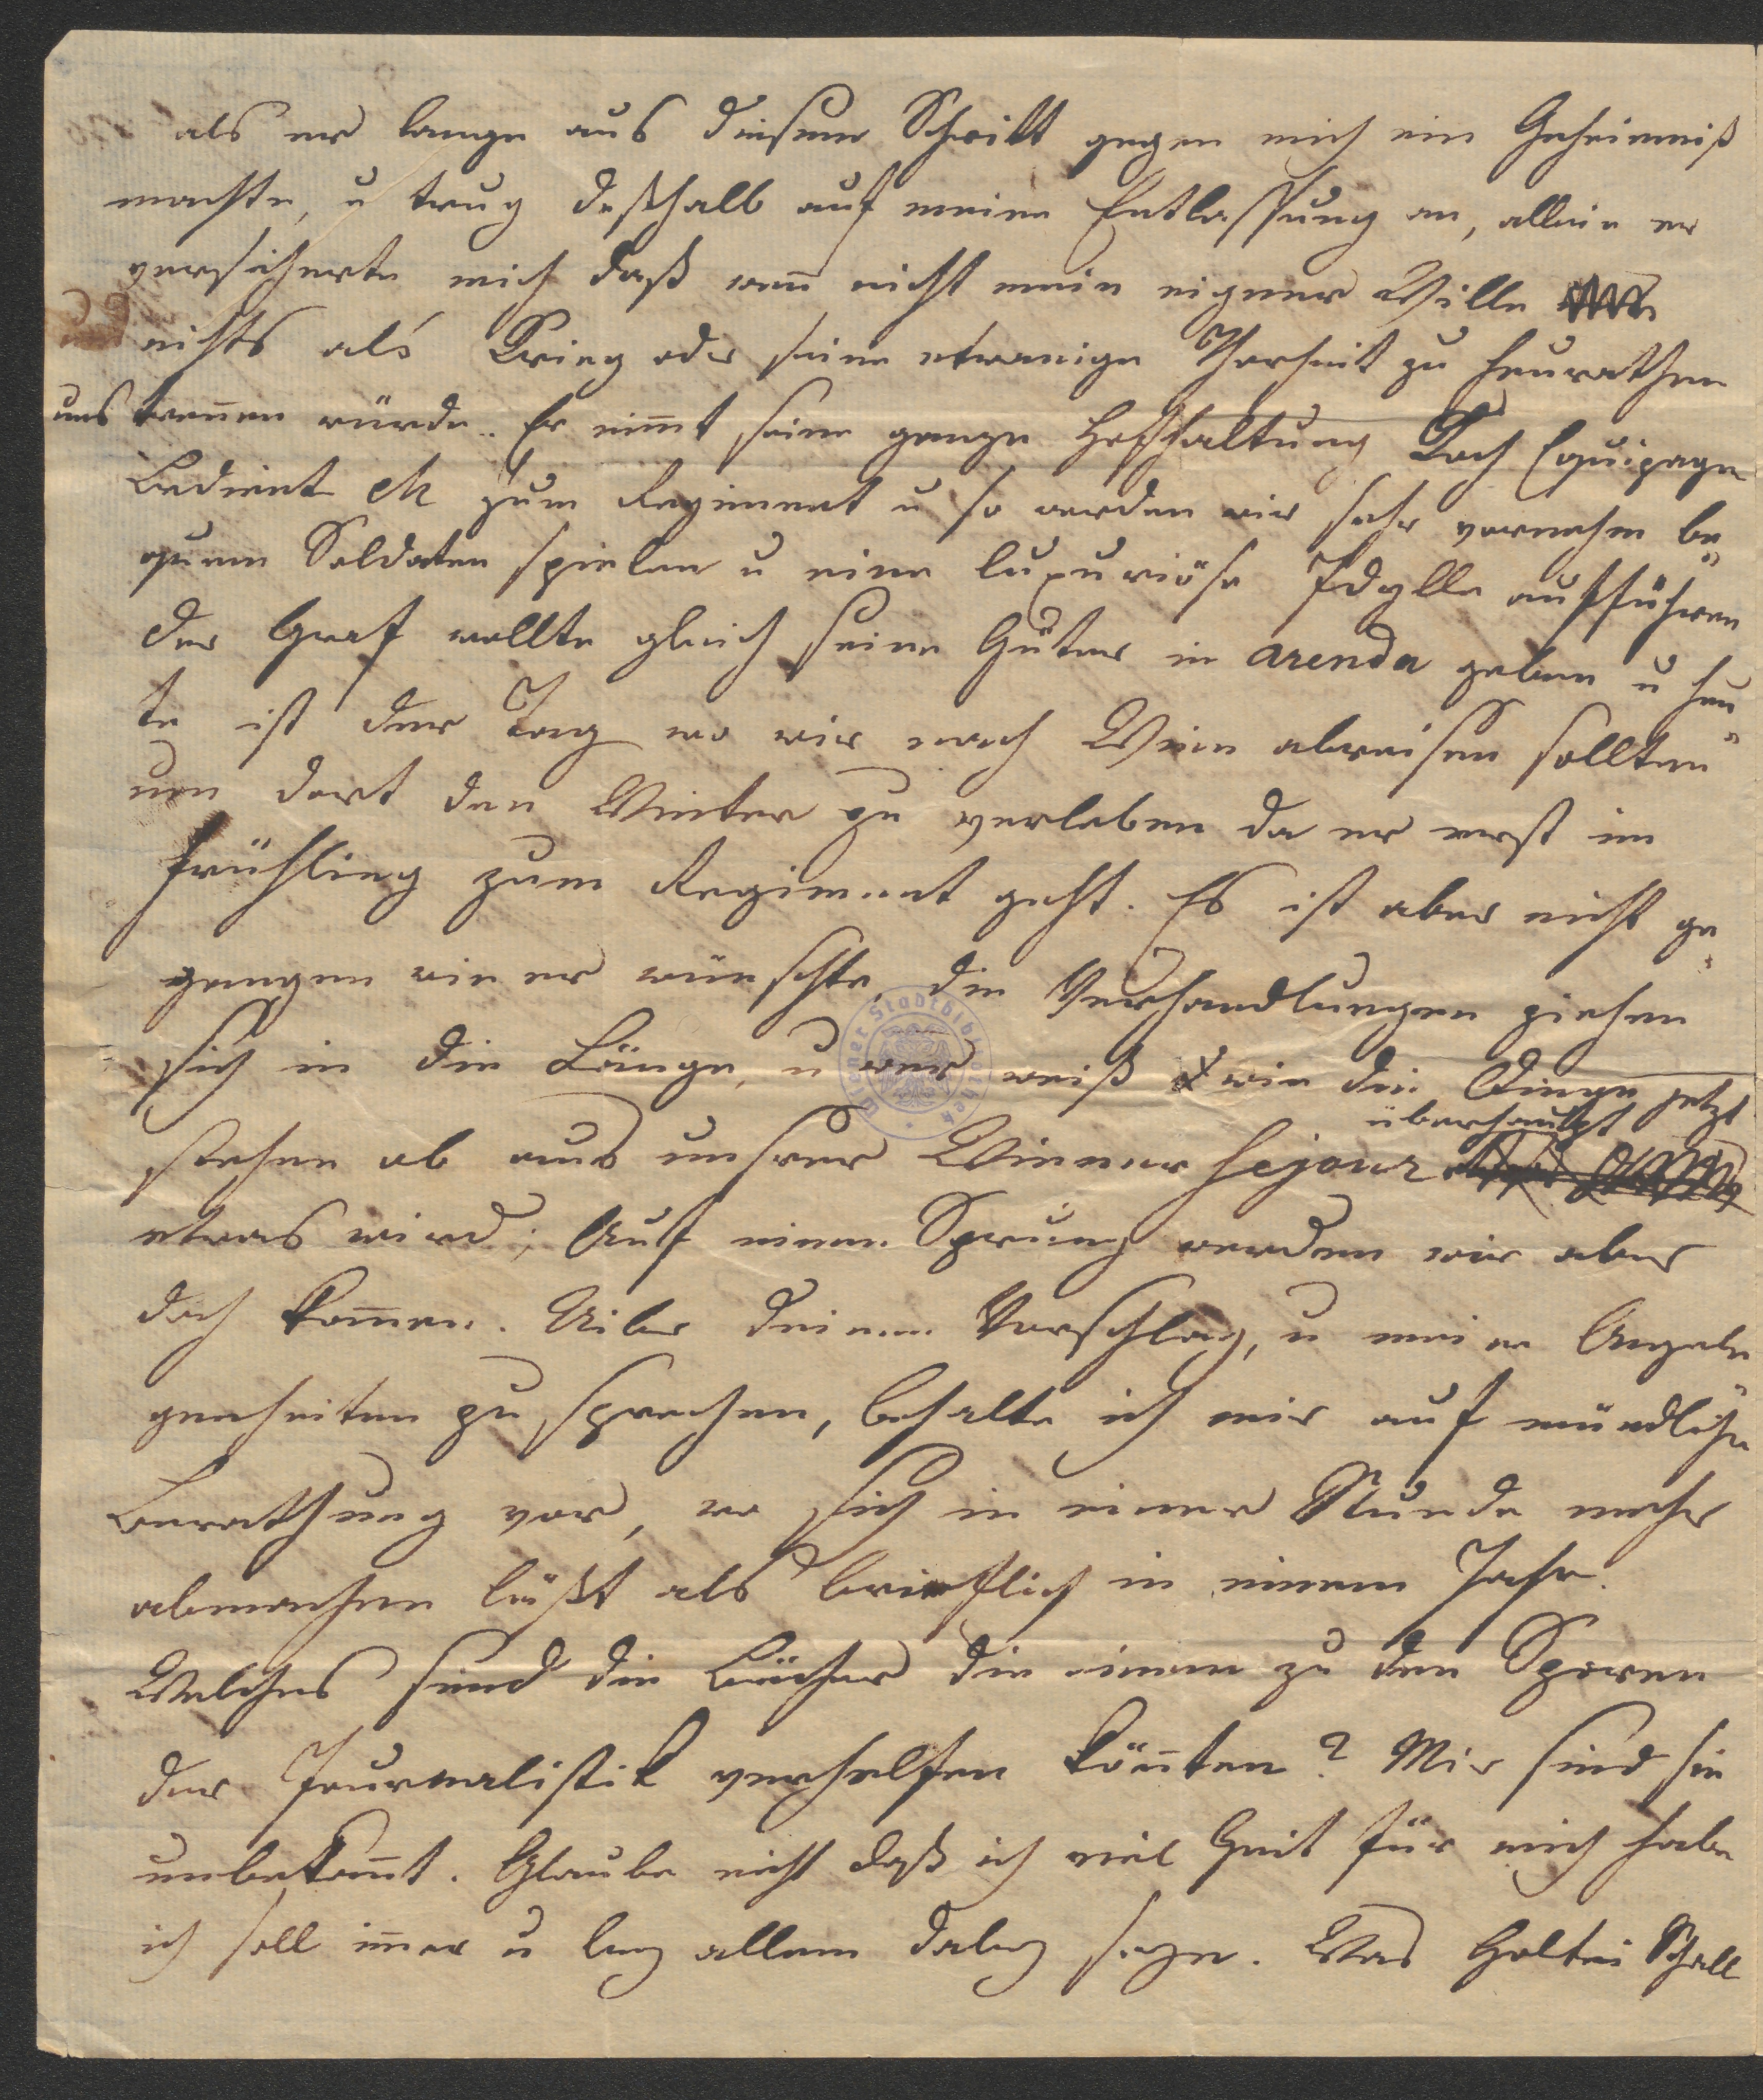 als er lange aus diesem Schritt gegen mich ein Geheimniß
machte, u trug deßhalb auf meine Entlassung an, allein er
versicherte mich daß wen̄ nicht mein eigner Wille
nichts als Krieg oder seine etwanige Thorheit zu heurathen
uns tren̄en würde. Er nim̄t seine ganze Hofhaltung Koch Equipage
Bediente etc zum Regiment u so werden wir sehr vornehm be„
quem Soldaten spielen u eine luxuriöse Idylle aufführen
der Graf wollte gleich seine Güter in arenda geben u heu„
te ist der Tag wo wir nach Wien abreisen sollten
um dort den Winter zu verleben da er erst im
Frühling zum Regiment geht. Es ist aber nicht ge„
gangen wie er wünschte, die Verhandlungen ziehen
sich in die Länge, u wer weiß wie die Dinge jetzt
überhaupt
stehen ob aus unsrer Wiener Sejour
etwas wird; Auf einen Sprung werden wir aber
doch kom̄en. Uiber deinen Vorschlag, u meine Angele„
genheiten zu sprechen, behalte ich mir auf mündliche
Berathung vor, wo sich in einer Stunde mehr
abmachen läßt als brieflich in einem Jahr.
Welches sind die Bücher die einem zu den Sporen
der Journalistik verhelfen kön̄ten? Mir sind sie
unbekan̄t. Glaube nicht daß ich viel Zeit für mich habe
ich soll im̄er u bey allem dabey seyn. Was Holtei Schall
Wiener Stadtbibliothek